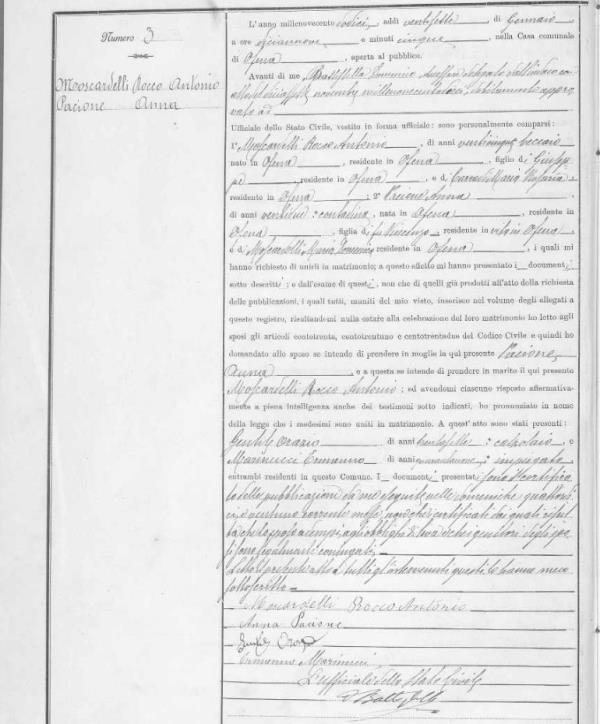 Numero 3
Moscardelli Rocco Antonio
Pacione Anna
L'anno millenovecento dodici, addì ventisette di Gennaio
a ore diciannove e minuti cinque, nella Casa comunale
di Ofena, aperta al pubblico.
Avanti di me,
Ufficiale dello Stato Civile, vestito in forma ufficiale: sono personalmente comparsi:
1° Moscardelli Rocco Antonio, di anni venticinque beccaio
nato in Ofena, residente in Ofena, figlio di Giusep-
pe, residente in Ofena, e di Maria
residente in Ofena; 2° Pacione Anna
di anni contadina, nata in Ofena, residente in
Ofena, figlia di fu Vincenzo, residente in vita in Ofena
e di Moscardelli Maria Domenica residente in Ofena, i quali mi
hanno richiesto di unirli in matrimonio; a questo effetto mi hanno presentato i documenti
sotto descritti; e dall'esame di questi, non che di quelli già prodotti all'atto della richiesta
delle pubblicazioni, i quali tutti, muniti del mio visto, inserisco nel volume degli allegati a
questo registro, risultandomi nulla ostare alla celebrazione del loro matrimonio ho letto agli
sposi gli articoli centotrenta, centotrentuno e centotrentadue del Codice Civile e quindi ho
domandato allo sposo se intende di prendere in moglie la qui presente Pacione
Anna, e a questa se intende di prendere in marito il qui presente
Moscardelli Rocco Antonio; ed avendomi ciascuno risposto affermativa-
mente a piena intelligenza anche dei testimoni sotto indicati, ho pronunziato in nome
della legge che i medesimi sono uniti in matrimonio. A quest'atto sono stati presenti:
Gentile Orazio di anni trentasette: calzolaio e
Marinucci Ermanno di anni: impiegato
entrambi residenti in questo Comune. I documenti presentati sono il certifica-
to delle pubblicazioni da me eseguite nelle domeniche quattordi-
ci e ventuno corrente mese
Letto il presente atto a tutti gl'intervenuti questi lo hanno meco
sottoscritto
Moscardelli Rocco Antonio
Anna Pacione
Gentile Orazio
Ermanno Marinucci
L'ufficiale dello Stato Civile